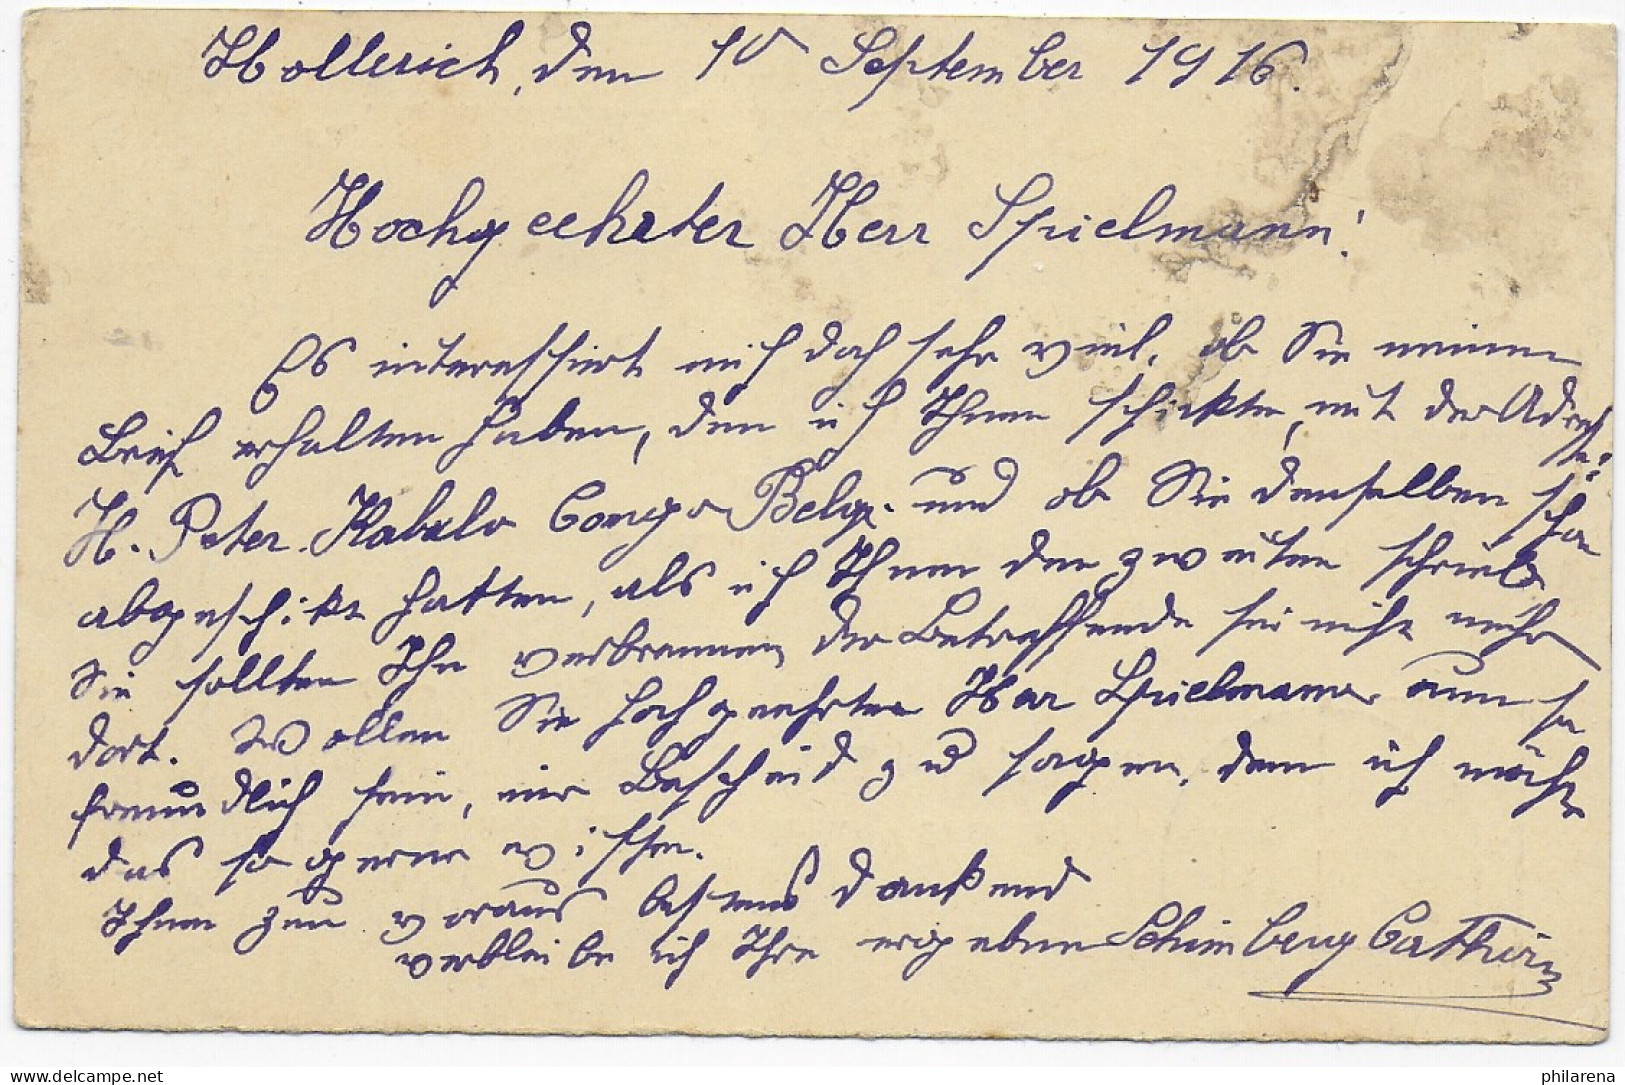 Hollerich, den 10 September 1916.
Hochgeehrter Herr Spielmann!
Es interessiert mich doch sehr viel, ob Sie meinen
Brief erhalten haben, den ich Ihnen schickte, mit der Adresse:
H. Peter. Kabalo Congo Belg. und ob Sie denselben schon
abgeschickt hatten, als ich Ihnen den zweiten schrieb
Sie sollten Ihn verbrennen, der Betreffende sei nicht mehr
dort. Wollen Sie hochgeehrter Herr Spielmann nun so
freundlich sein, mir Bescheid zu sagen, denn ich möchte
das so gerne wissen.
Ihnen zum voraus bestens dankend
verbleibe ich Ihre ergebene Schimberg Cathrin
delcampe.net
philarena